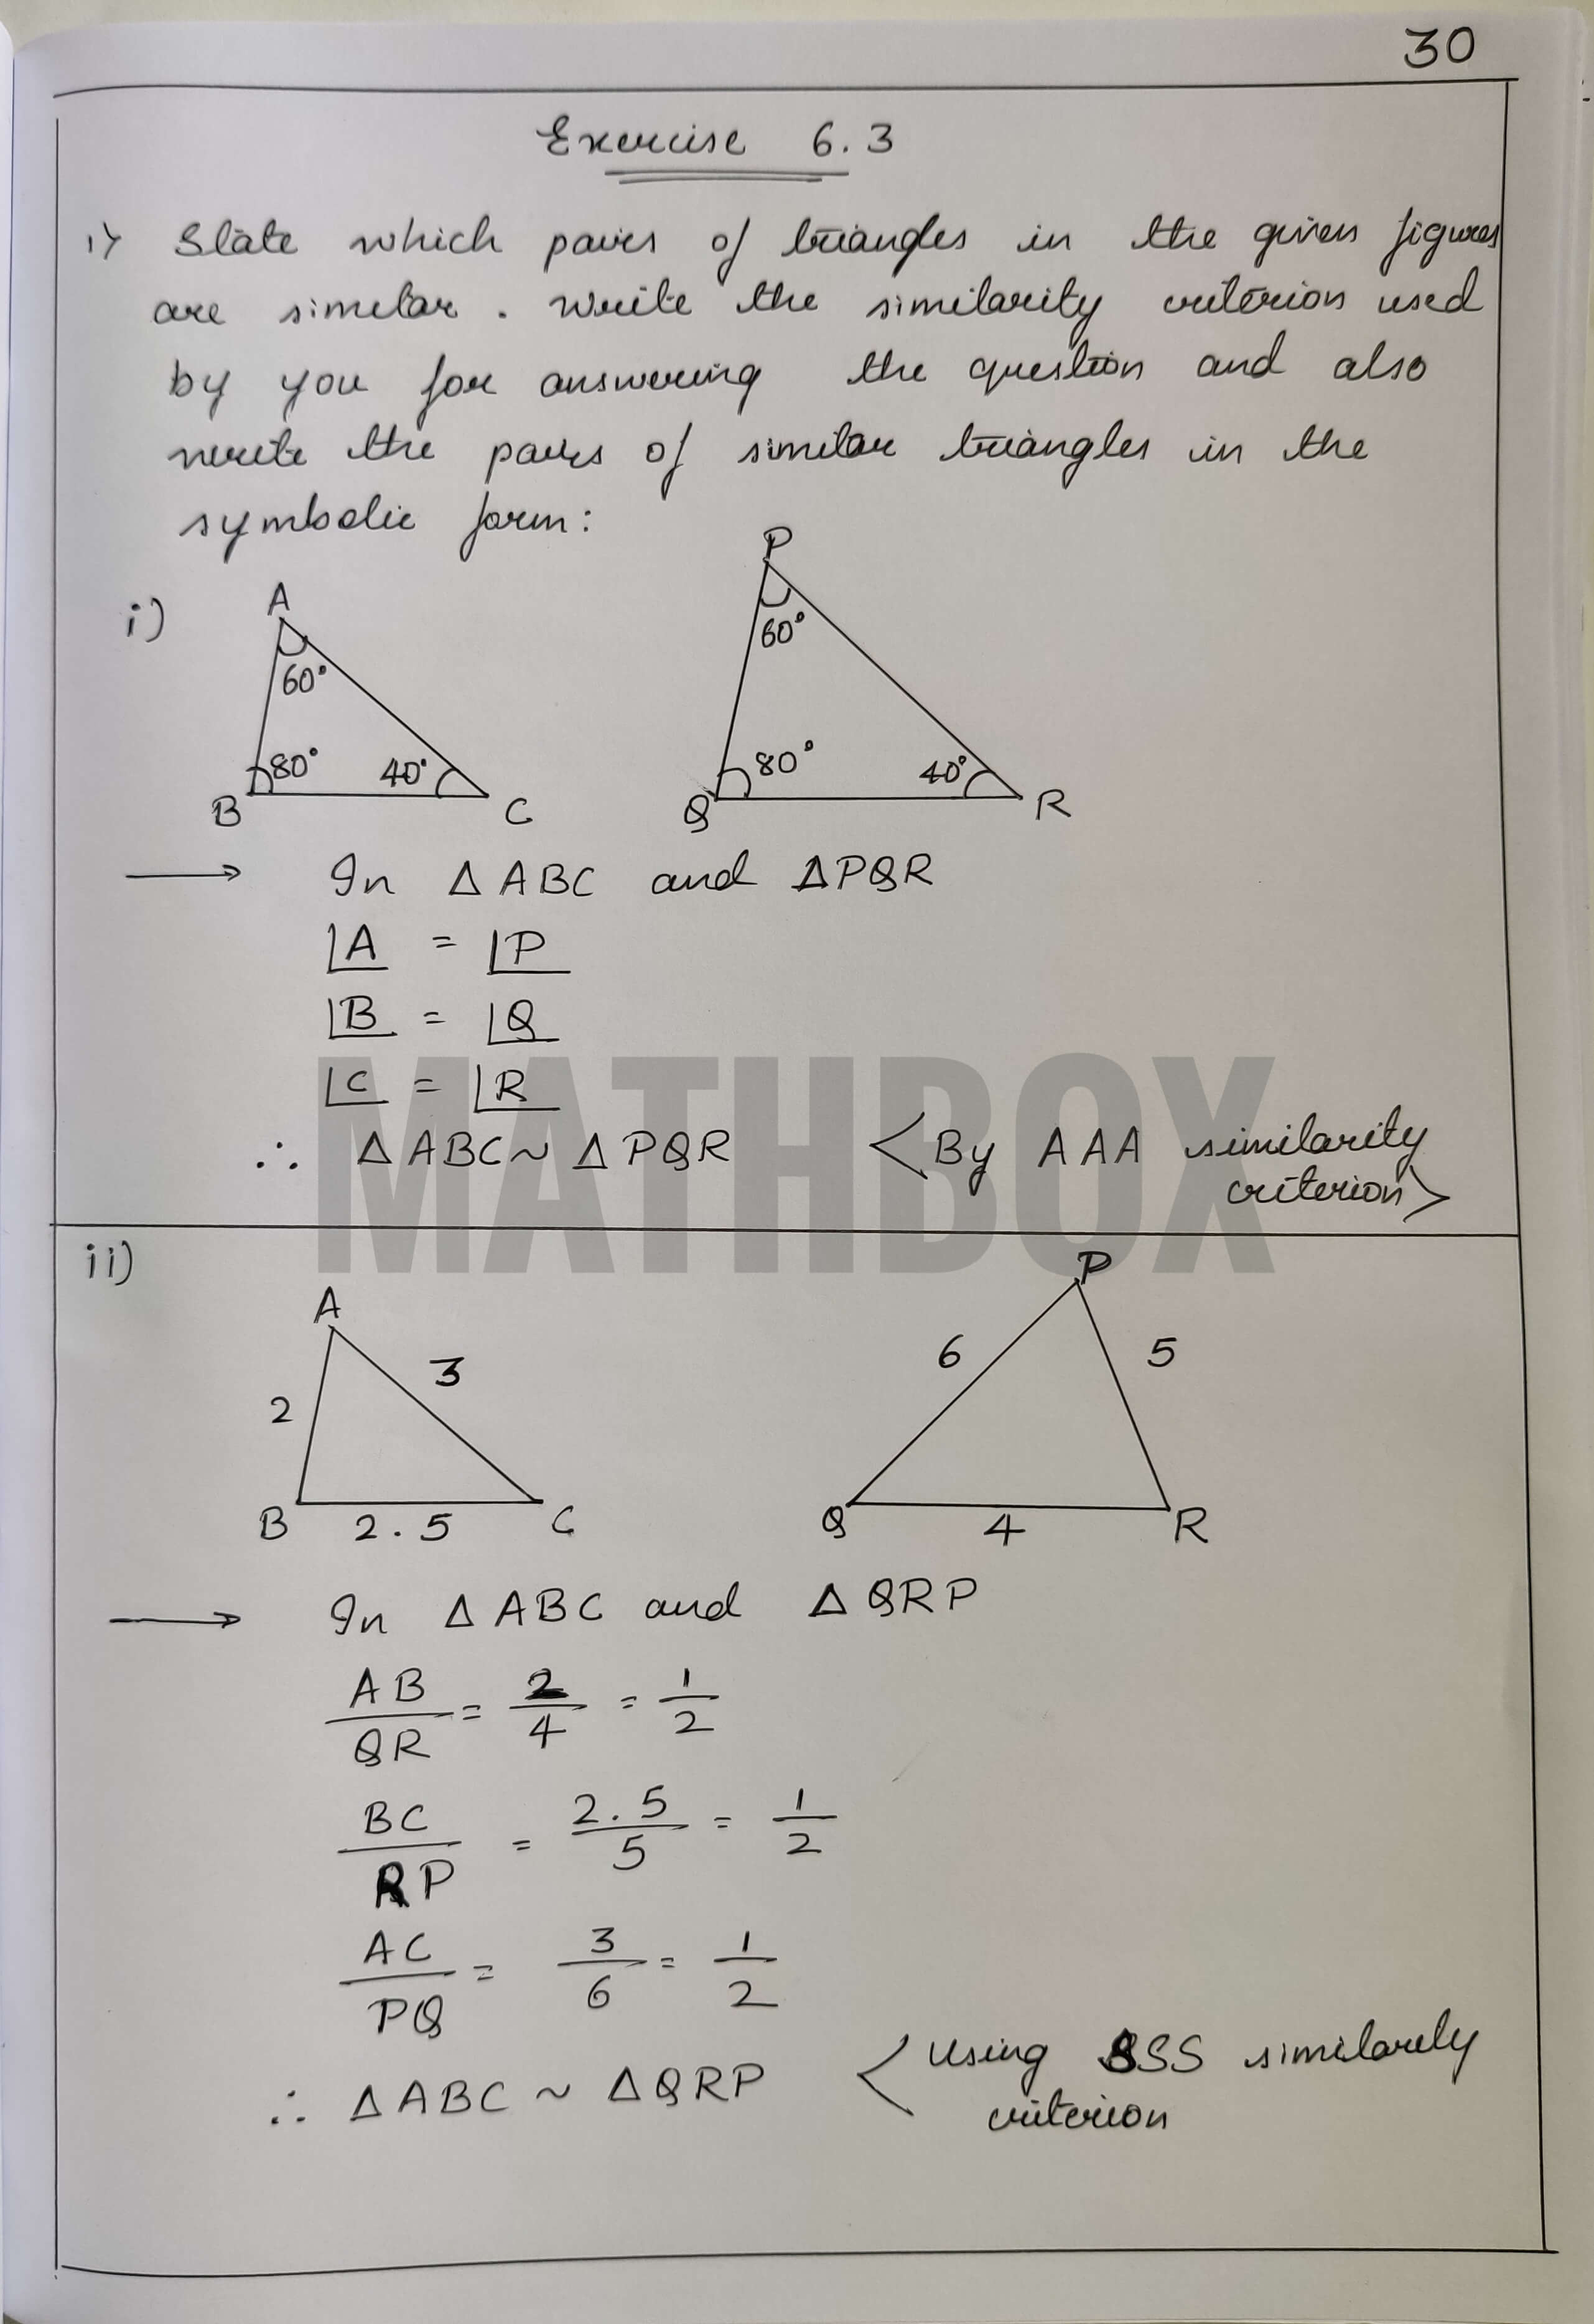 30
Exercise 6.3
1> State which pairs of triangles in the given figures
are similar. Write the similarity criterion used
by you for answering the question and also
write the pairs of similar triangles in the
symbolic form:
i)
A
60°
80°
40°
B
C
P
60°
80°
40°
Q
R
→ In △ABC and △PQR
∠A = ∠P
∠B = ∠Q
∠C = ∠R
∴ △ABC ~ △PQR <By AAA similarity
criterion>
MATHBOX
ii)
A
2
3
B 2.5 C
P
6
5
Q 4 R
→ In △ABC and △QRP
AB/QR = 2/4 = 1/2
BC/RP = 2.5/5 = 1/2
AC/PQ = 3/6 = 1/2
∴ △ABC ~ △QRP <Using SSS similarity
criterion